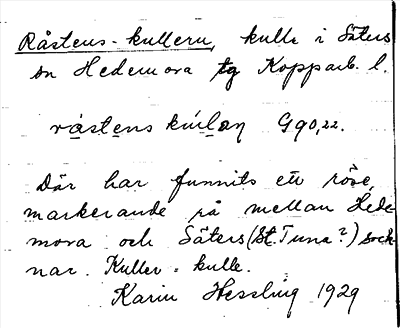 Råstens-kullern, kulle i Säters
sn Hedemora tg Kopparb. l.
råstenskúlan G90,22.
Där har funnits ett röse,
markerande rå mellan Hede
mora och Säters (St. Tuna?) sock
nar. Kuller = kulle.
Karin Hessling 1929